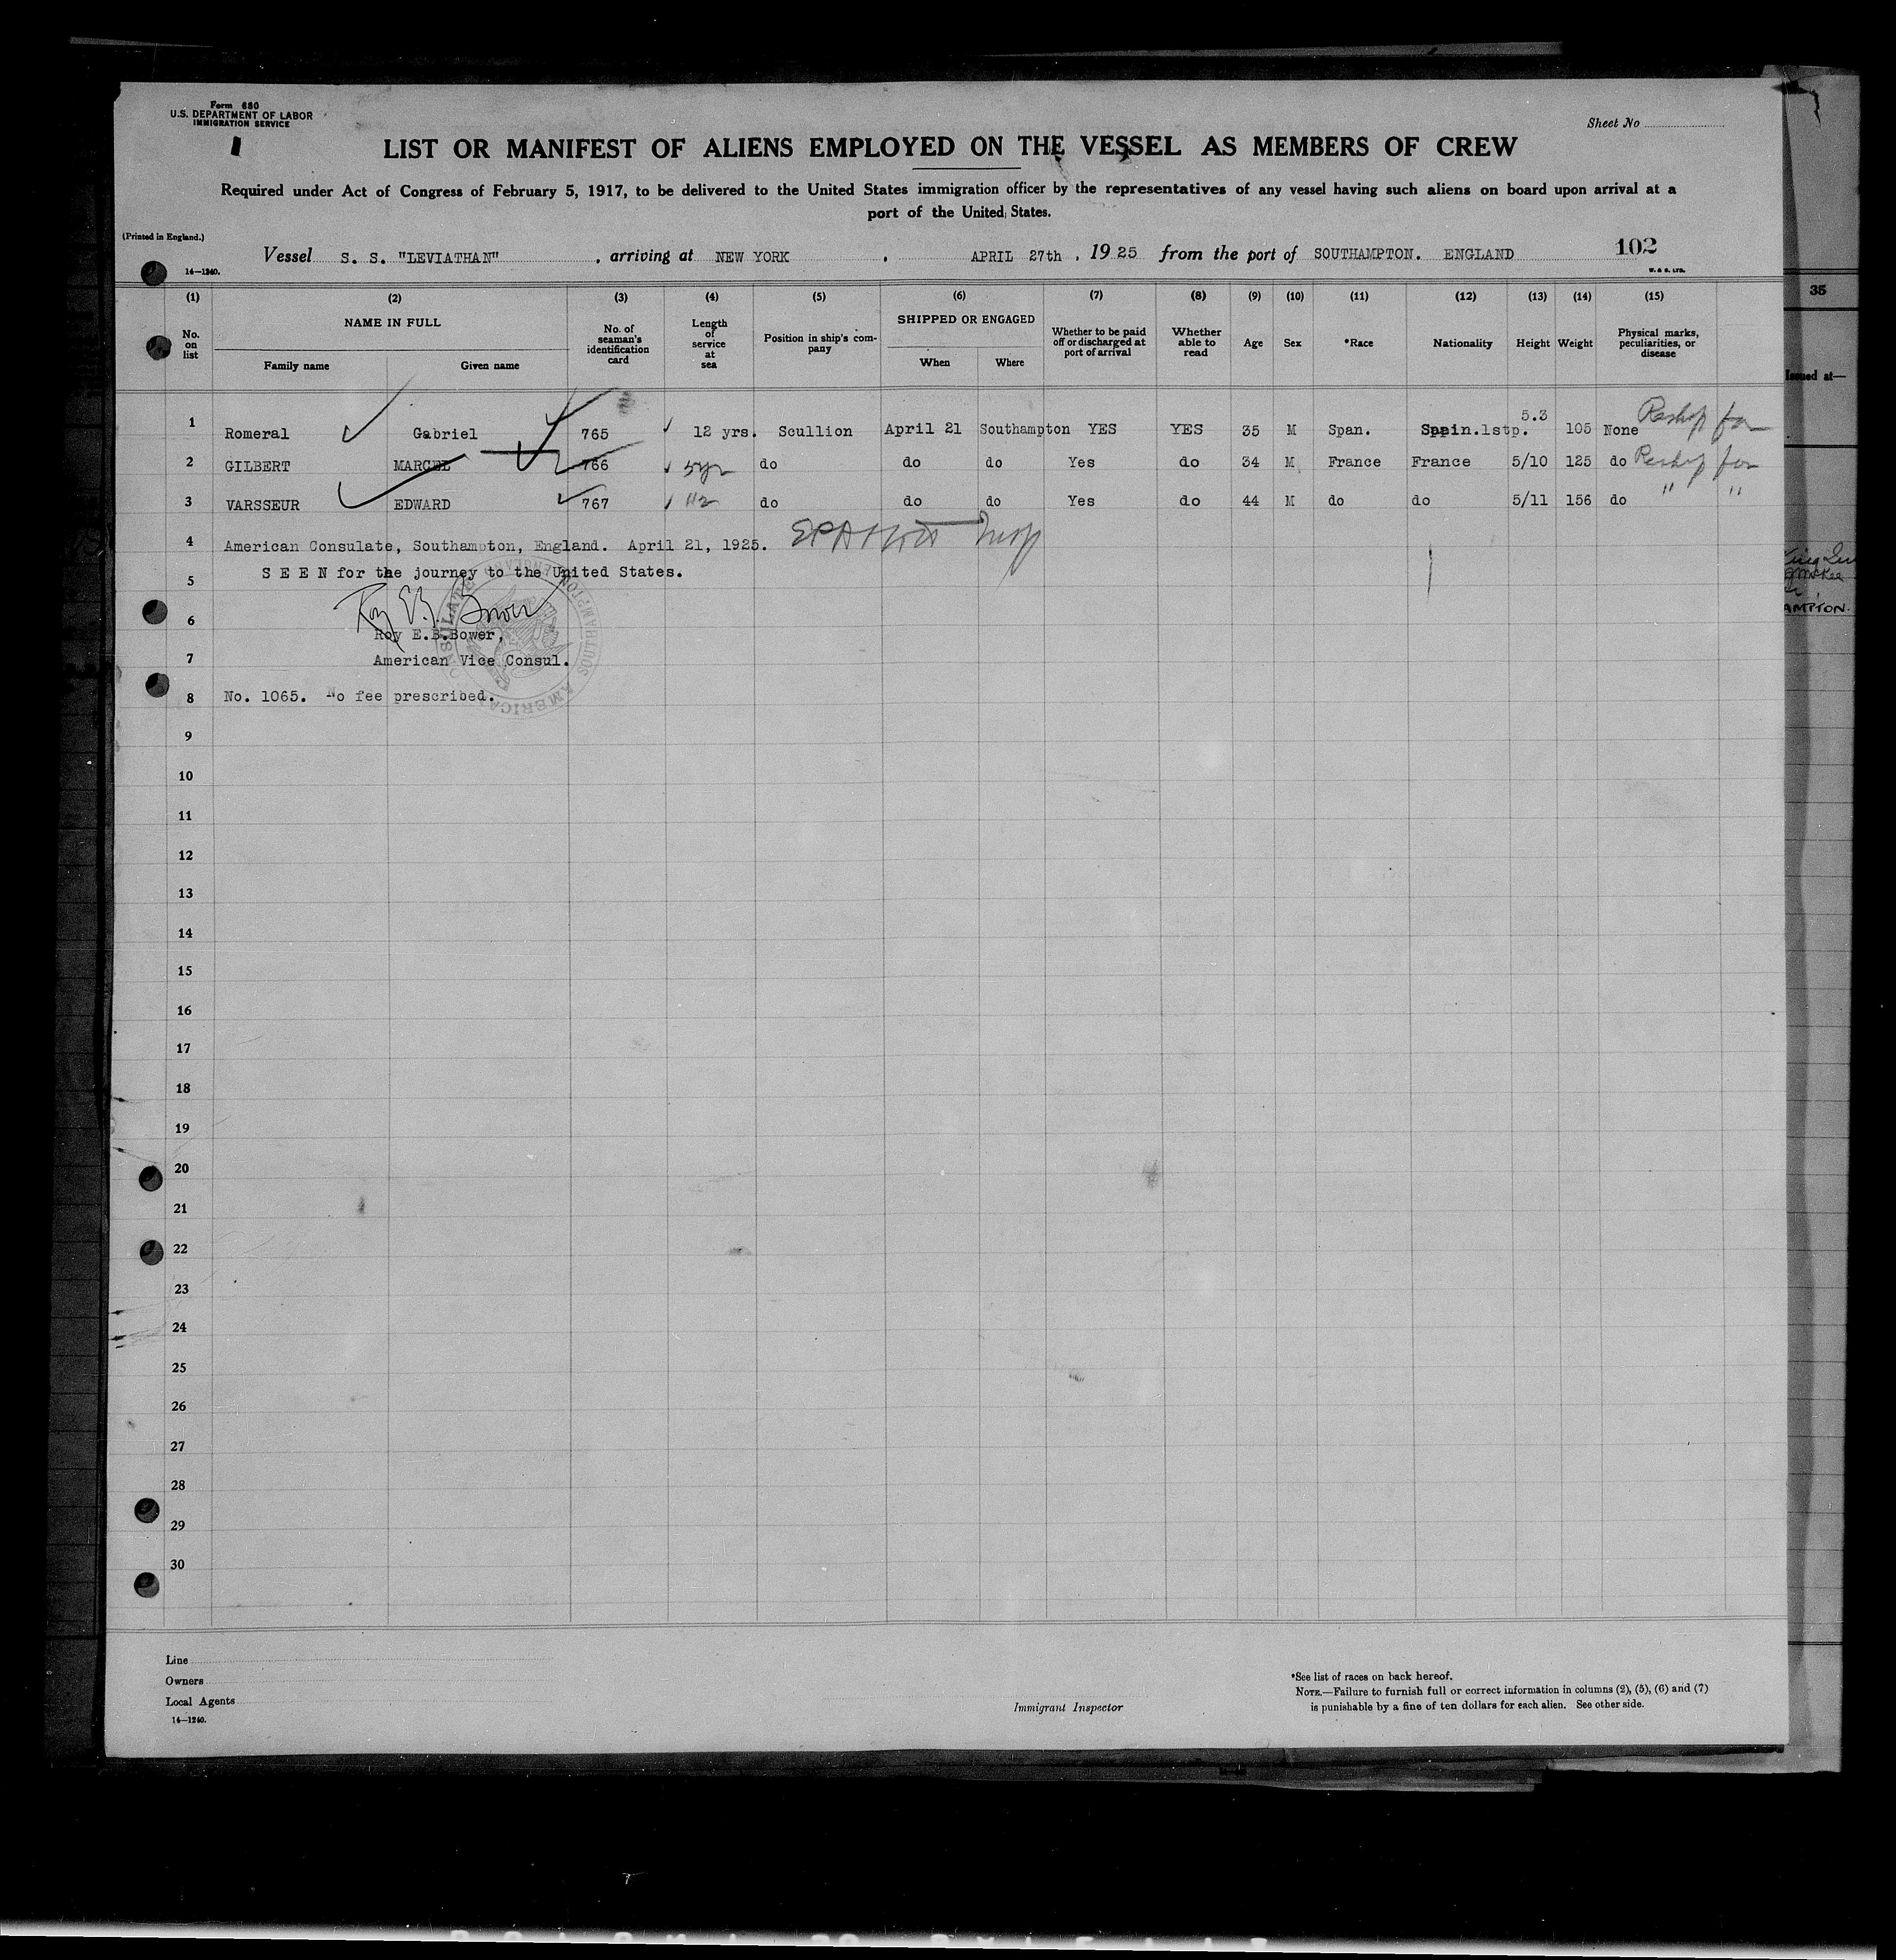 Form 680
U.S. DEPARTMENT OF LABOR
IMMIGRATION SERVICE
Sheet No
LIST OR MANIFEST OF ALIENS EMPLOYED ON THE VESSEL AS MEMBERS OF CREW
Required under Act of Congress of February 5, 1917, to be delivered to the United States immigration officer by the representatives of any vessel having such aliens on board upon arrival at a
port of the United States.
(Printed in England.)
Vessel S. S. "LEVIATHAN", arriving at NEW YORK, APRIL 27th, 1925 from the port of SOUTHAMPTON. ENGLAND 102
14—1240.
W. & S. LTD.
(1) (2) (3) (4) (5) (6) (7) (8) (9) (10) (11) (12) (13) (14) (15)
No. on list
NAME IN FULL
Family name
Given name
No. of seaman's identification card
Length of service at sea
Position in ship's company
SHIPPED OR ENGAGED
When
Where
Whether to be paid off or discharged at port of arrival
Whether able to read
Age
Sex
*Race
Nationality
Height
Weight
Physical marks, peculiarities, or disease
35
Issued at—
1 Romeral Gabriel 765 12 yrs. Scullion April 21 Southampton YES YES 35 M Span. Spain.1stp. 5.3 105 None Reship for
2 GILBERT MARCEL 766 5yr do do do Yes do 34 M France France 5/10 125 do Reship for
3 VARSSEUR EDWARD 767 do do do Yes do 44 M do do 5/11 156 do " "
4 American Consulate, Southampton, England. April 21, 1925.
5 SEEN for the journey to the United States.
6 Roy E.B. Bower
Roy E.B.Bower,
7 American Vice Consul.
AMERICAN CONSULATE SOUTHAMPTON, ENGLAND
8 No. 1065. No fee prescribed.
AMPTON.
9
10
11
12
13
14
15
16
17
18
19
20
21
22
23
24
25
26
27
28
29
30
Line
Owners
Local Agents
14—1240.
Immigrant Inspector
*See list of races on back hereof.
NOTE.—Failure to furnish full or correct information in columns (2), (5), (6) and (7)
is punishable by a fine of ten dollars for each alien. See other side.